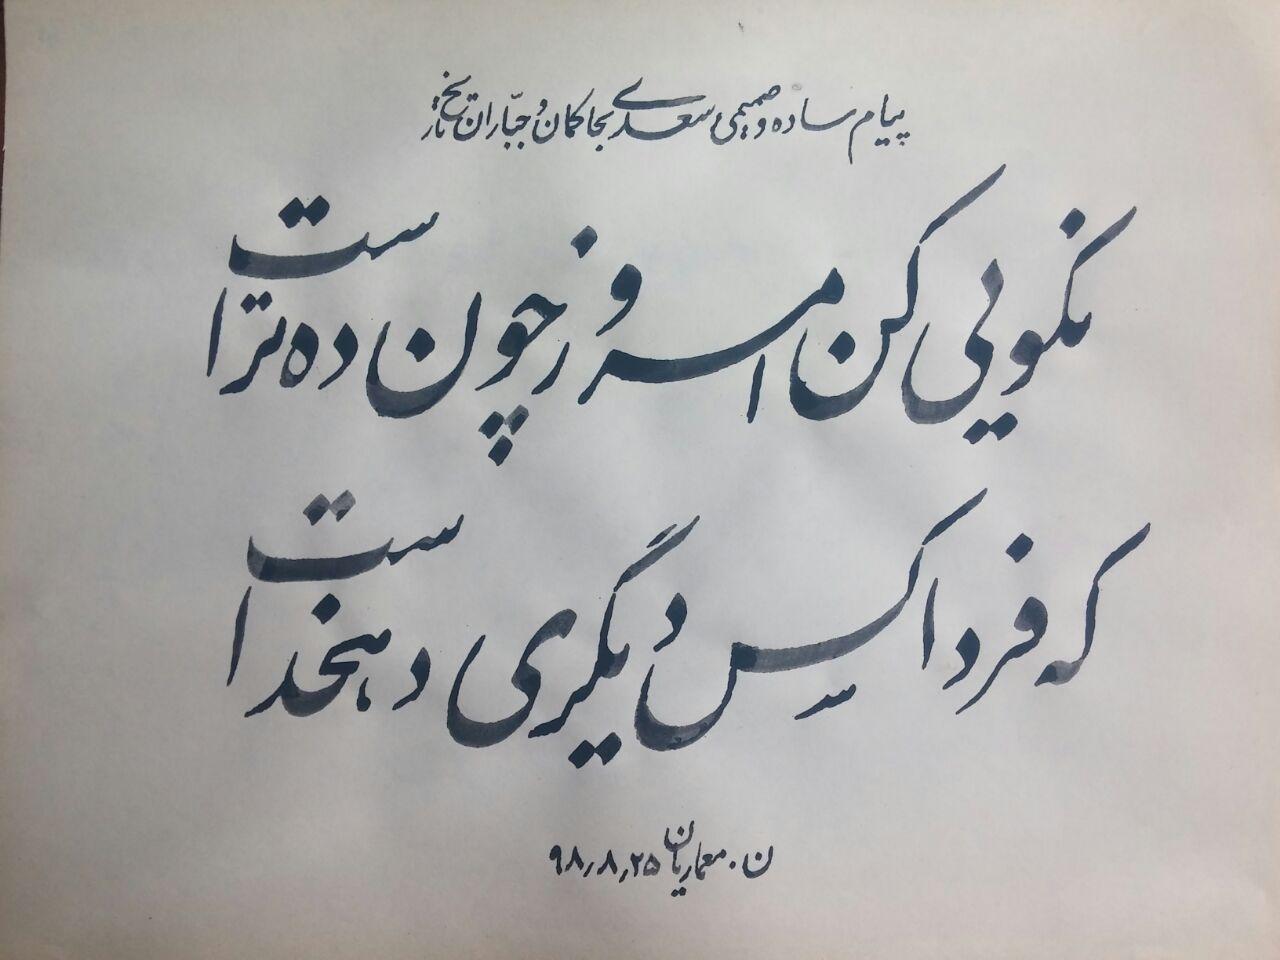 پیام ساده و صمیمی سعدی بحاکمان و جبّاران تاریخ
نکویی کن امروز چون ده تراست
که فردا کسِ دیگری دهخداست
ن. معماریان ۹۸٫۸٫۲۵